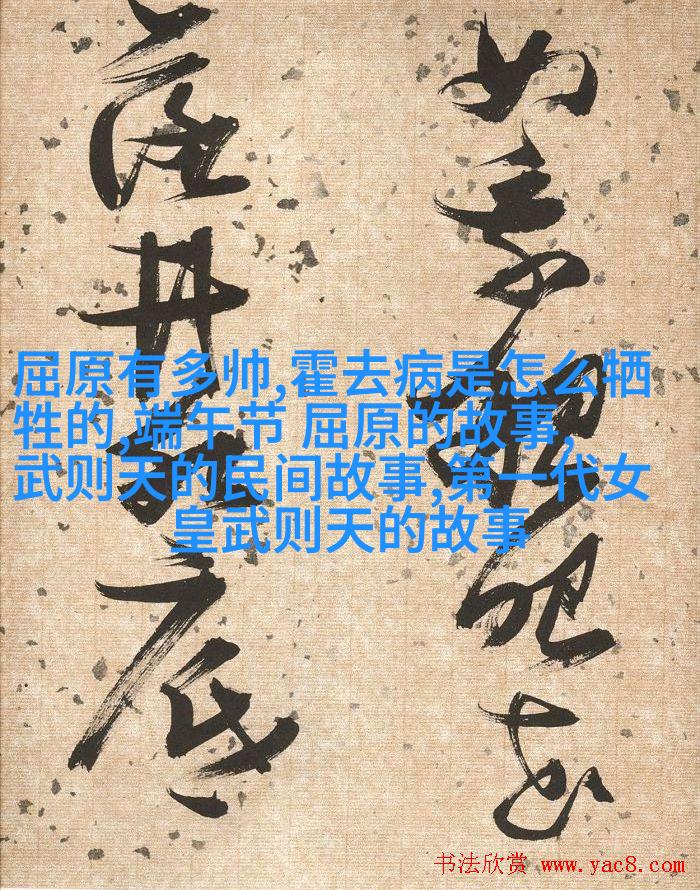 似乘船眼花
落井水底
屈原有多帅,霍去病是怎么牺
牲的,端午节 屈原的故事,
武则天的民间故事,第一代女
皇武则天的故事
书法欣赏 www.yac8.com